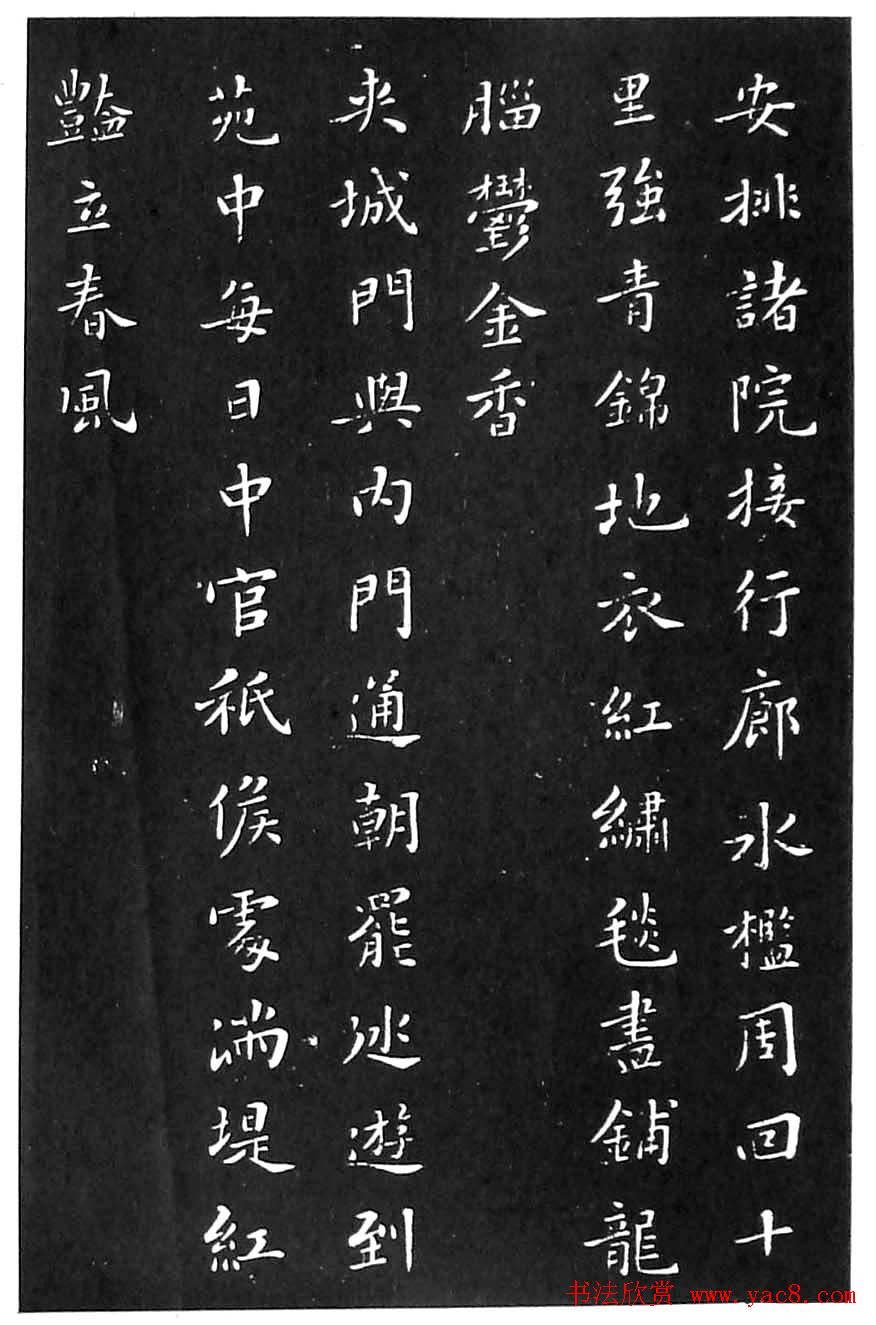 安排諸院接行廊水檻周回十
里強青錦地衣紅繡毯盡鋪龍
腦鬱金香
夾城門與內門通朝罷巡遊到
苑中每日中官祇候處滿堤紅
豔立春風
书法欣赏 www.yac8.com